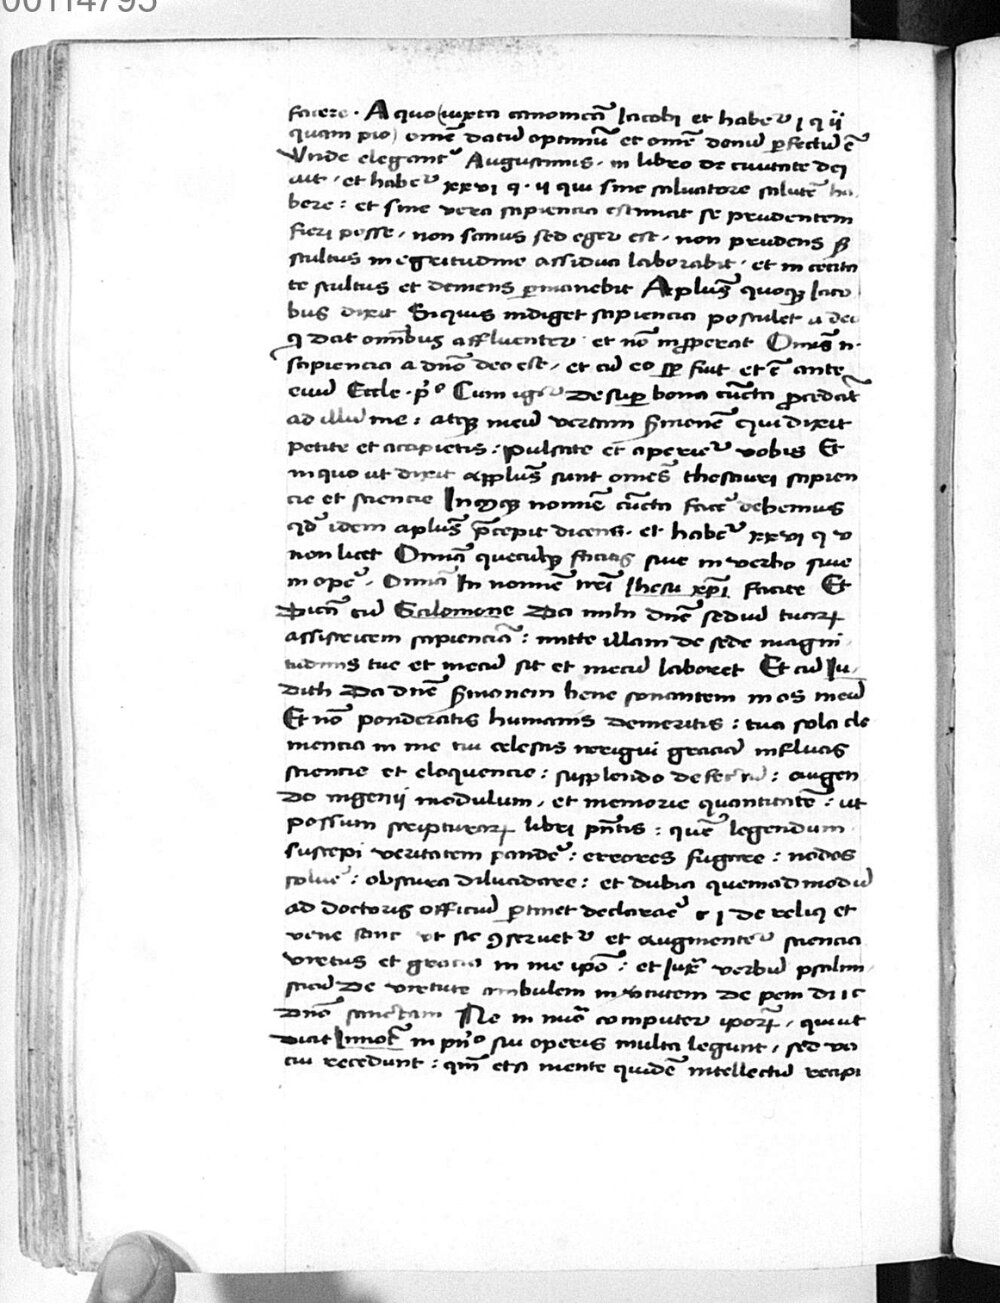 00114795
facere . A quo (iuxta canonicā Iacobi et habet᷑ i q ii
quam pio) omē datū optimū et omē donū ꝑfectū ē
Vnde elegant᷑ Augustinus . in libro de ciuitate dei
ait . et habet᷑ xxvi q . ii qui sine saluatore salutē ha
bere : et sine vera sapiencia estimat se prudentem
fieri posse . non sanus sed eger est . non prudens sꝫ
stultus in egritudine assidua laborabit . et in cecita
te stultus et demens ꝑmanebit Aplūs quoqꝫ Iaco
bus dixit Siquis indiget sapiencia postulet a deo
q dat omībus affluenter et nō improperat Omis n.
sapiencia a dno deo est . et cū eo sꝑ fuit et ē ante
euū Eccle . pº Cum igr᷑ desuꝑ bona cūcta ꝓcedāt
ad illū me : atqꝫ meū vertam s̄monē qui dixit
petite et accipietis : pulsate et aperiet᷑ vobis Et
in quo ut dixit applūs sunt omēs thesauri sapien
cie et sciencie In cuiꝰ nomīe cūcta facē debemus
qđ idem aplūs p̄cepit dicens . et habet᷑ xxvi q v
non licet Omīa quecūqꝫ facitis siue in verbo siue
in opē . Omīa In nomīe nr̄i Ihesu xp̄i facite Et
Dicā cū Salomone Da mihi dnē sediū tuarꝝ
assistricem sapienciā : mitte illam de sede magni
tudinis tue et mecū sit et mecū laboret Et cū Iu
dith Da dnē s̄monem bene sonantem in os meū
Et nō ponderatis humanis demeritis : tua sola cle
mencia in me tui celestis irrigui graciā influas
sciencie et eloquencie : supplendo defectū : augen
do ingenij modulum . et memorie quantitatē : ut
possum scripturarꝝ libri pn̄tis : quē legendum
suscepi veritatem pandē : errores fugare : nodos
soluē : obscura dilucidare : et dubia quemadmodū
ad doctoris officiū ꝑtinet declarāe c i de reliq et
vene sanc vt sic ꝯseruet᷑ et augmentet᷑ sciencia
virtus et gracia in me ipō : et Iux᷑ verbū psalmi
staū De virtute ambulem in virtutem
dnō sanctam Ne in nūō computer ipōrꝝ . qui ut
dicit Innoc̄ in pn̄º sui operis multa legunt . sed va
cui recedunt : qm̄ etsi mente quidē intellectū recipi